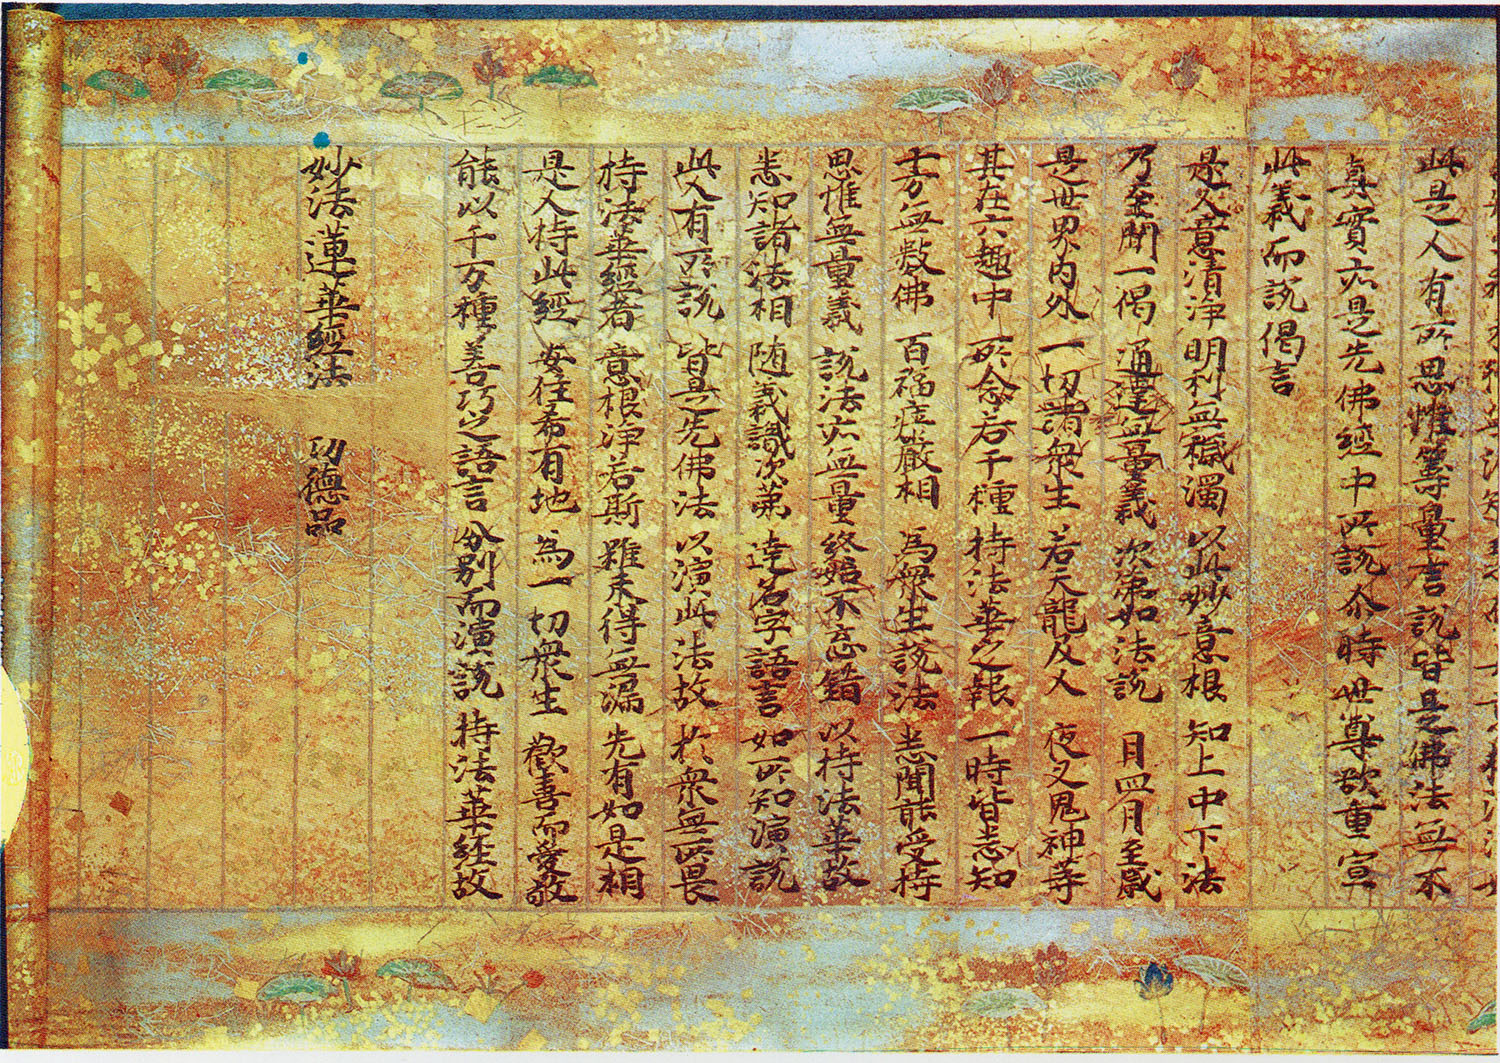 此是人有所思惟籌量言說皆是佛法無不
真實亦是先佛經中所說尒時世尊欲重宣
此義而說偈言
是人意清淨 明利無穢濁 以此妙意根 知上中下法
乃至聞一偈 通達無量義 次第如法說 月四月至歲
是世界內外 一切諸衆生 若天龍及人 夜叉鬼神等
其在六趣中 所念若干種 持法華之報 一時皆悉知
十方無數佛 百福庄嚴相 為衆生說法 悉聞能受持
思惟無量義 說法亦無量 終始不忘錯 以持法華故
悉知諸法相 随義識次第 達名字語言 如所知演說
此人有所說 皆是先佛法 以演此法故 於衆無所畏
持法華經者 意根淨若斯 雖未得無漏 先有如是相
是人持此經 安住希有地 為一切衆生 歡喜而愛敬
能以千万種 善巧之語言 分別而演說 持法華經故
妙法蓮華經法 功德品